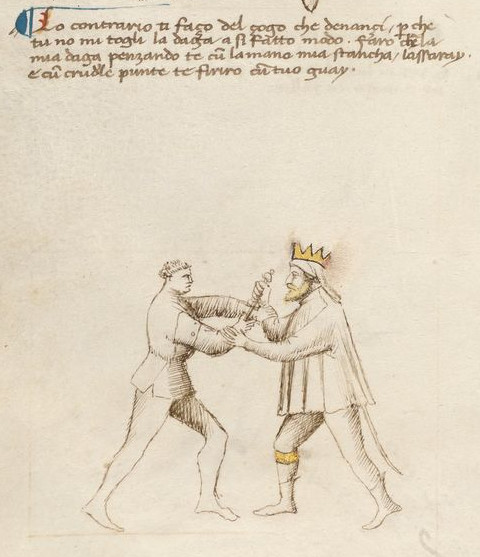 Lo contrario ti faço del çogo che denançi, p che
tu no mi togli la daga a si fatto modo. Faro che la
mia daga penzando te cū la mano mia stancha, lassaray.
e cū crudele punte te firiro cū tuo guay.